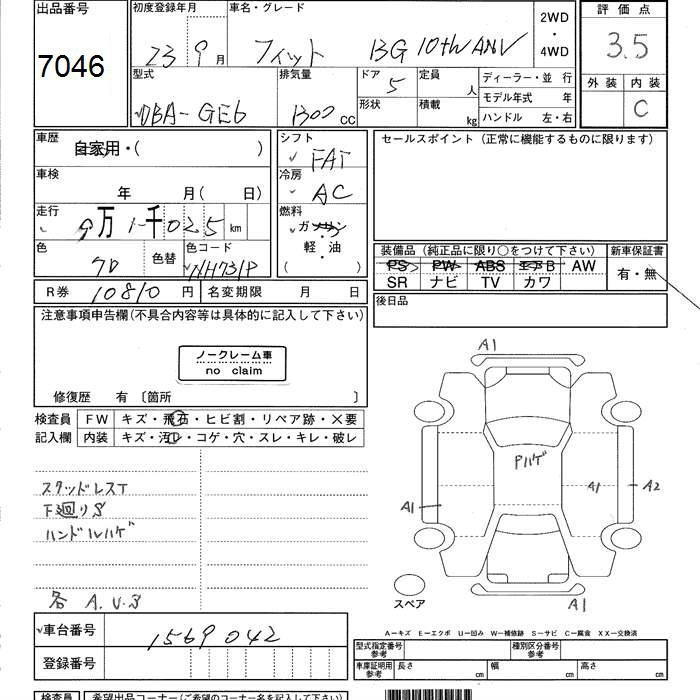 出品番号
7046
初度登録年月
23 9月
車名・グレード
フィット 13G 10th ANV
2WD
・
4WD
評価点
3.5
外装 内装
C
型式
DBA-GE6
排気量
1300 cc
ドア 5
形状
定員 人
積載 kg
ディーラー・並行
モデル年式 年
ハンドル 左・右
車歴
自家用・( )
車検
年 月( 日)
走行
9万1千025 km
色
色替
色コード
NH731P
シフト
FAT
冷房
AC
燃料
ガソリン
軽・油
( )
セールスポイント (正常に機能するものに限ります)
装備品 (純正品に限り○をつけて下さい)
PS PW ABS エアB AW
SR ナビ TV カワ
新車保証書
有・無
後日品
R券 10810 円
名変期限 月 日
注意事項申告欄(不具合内容等は具体的に記入して下さい)
ノークレーム車
no claim
修復歴 有 〔箇所 〕
検査員
記入欄
FW キズ・飛石・ヒビ割・リペア跡・×要
内装 キズ・汚レ・コゲ・穴・スレ・キレ・破レ
スタッドレスT
下廻りS
ハンドルハゲ
各 A.U.S
A1
Pハゲ
A1
A1
A2
A1
スペア
車台番号
1569042
登録番号
A－キズ E－エクボ U－凹み W－補修跡 S－サビ C－腐食 XX－交換済
型式指定番号
参考
種別区分番号
参考
車庫証明用
参考
長さ cm
幅 cm
高さ cm
検査員
希望出品コーナー(ご希望のコーナー名を記入して下さい)